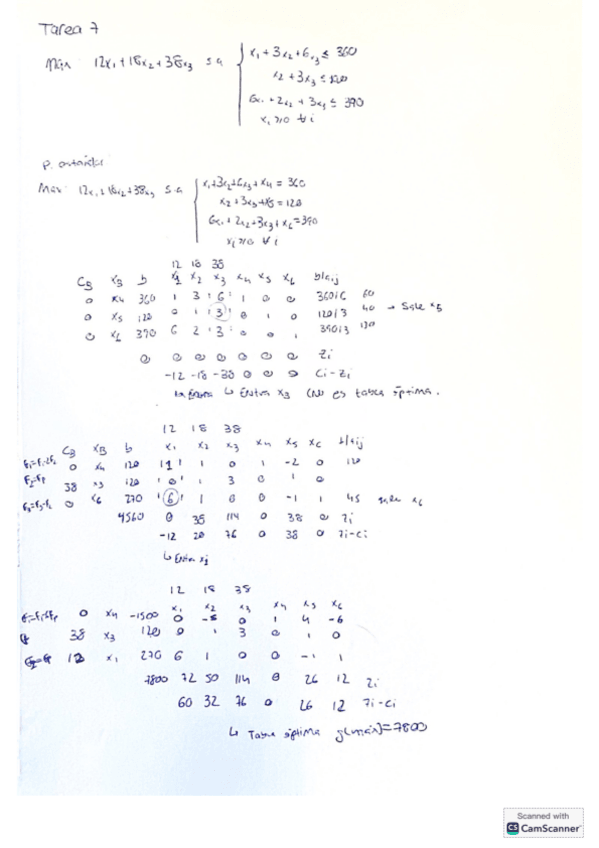 Tarea 7
Máx 12x₁+18x₂+38x₃ s.a
x₁+3x₂+6x₃ ≤ 360
x₂+3x₃ ≤ 120
6x₁+2x₂+3x₃ ≤ 390
xᵢ ≥ 0 ∀ i
P.
Max 12x₁+18x₂+38x₃ s.a
x₁+3x₂+6x₃+x₄ = 360
x₂+3x₃+x₅ = 120
6x₁+2x₂+3x₃+x₆ = 390
xᵢ ≥ 0 ∀ i
12 18 38
CB XB b x₁ x₂ x₃ x₄ x₅ x₆ b/aij
0 x₄ 360 1 3 6 1 0 0 360/6 60
0 x₅ 120 0 1 3 0 1 0 120/3 40 → Sale x₅
0 x₆ 390 6 2 3 0 0 1 390/3 130
0 0 0 0 0 0 0 Zi
-12 -18 -38 0 0 0 Ci-Zi
↳ Entra x₃ (No es tabla óptima.
12 18 38
CB XB b x₁ x₂ x₃ x₄ x₅ x₆ b/aij
0 x₄ 120 1 1 0 1 -2 0 120
38 x₃ 120 0 1 3 0 1 0
0 x₆ 270 6 1 0 0 -1 1 45 sale x₆
4560 0 38 114 0 38 0 Zi
-12 20 76 0 38 0 Zi-Ci
↳ Entra x₁
12 18 38
x₁ x₂ x₃ x₄ x₅ x₆
0 x₄ -1500 0 -5 0 1 4 -6
38 x₃ 120 0 1 3 0 1 0
12 x₁ 270 6 1 0 0 -1 1
7800 72 50 114 0 26 12 Zi
60 32 76 0 26 12 Zi-Ci
↳ Tabla óptima z(máx)=7800
Scanned with
CS CamScanner